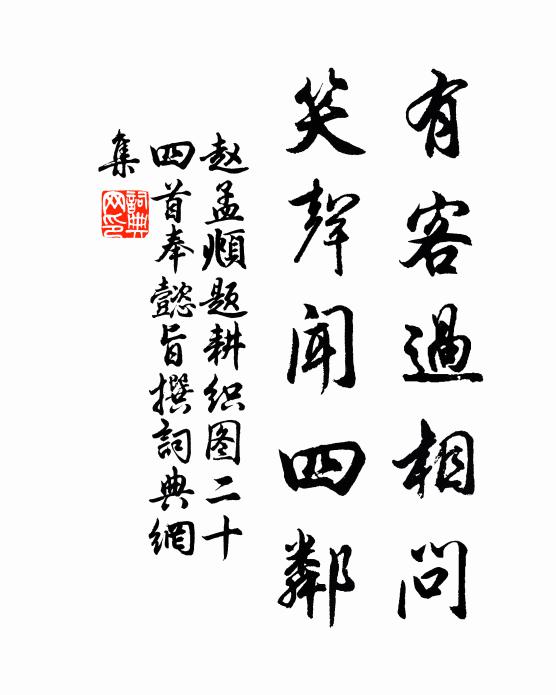 有客過相問
笑聲聞四鄰
赵孟頫题耕织图二十
四首奉懿旨撰詞典網
集
詞典
网印